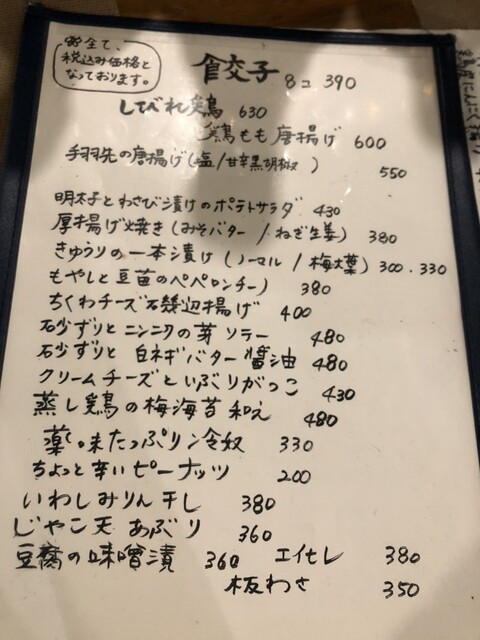 ※全て、
税込み価格と
なっております。
餃子 8コ 390
しびれ鶏 630
鶏もも唐揚げ 600
手羽先の唐揚げ(塩/甘辛黒胡椒) 550
明太子とわさび漬けのポテトサラダ 430
厚揚げ焼き(みそバター/ねぎ生姜) 380
きゅうりの一本漬け(ノーマル/梅大葉) 300.330
もやしと豆苗のペペロンチー) 380
ちくわチーズ石幾辺揚げ 400
砂ずりとニンニクの芽ソテー 480
砂ずりと白ネギバター醤油 480
クリームチーズといぶりがっこ 430
蒸し鶏の梅海苔和え 480
薬味たっぷり冷奴 330
ちょっと辛いピーナッツ 200
いわしみりん干し 380
じゃこ天あぶり 360
豆腐の味噌漬 360 エイヒレ 380
板わさ 350
にんにく揚げ